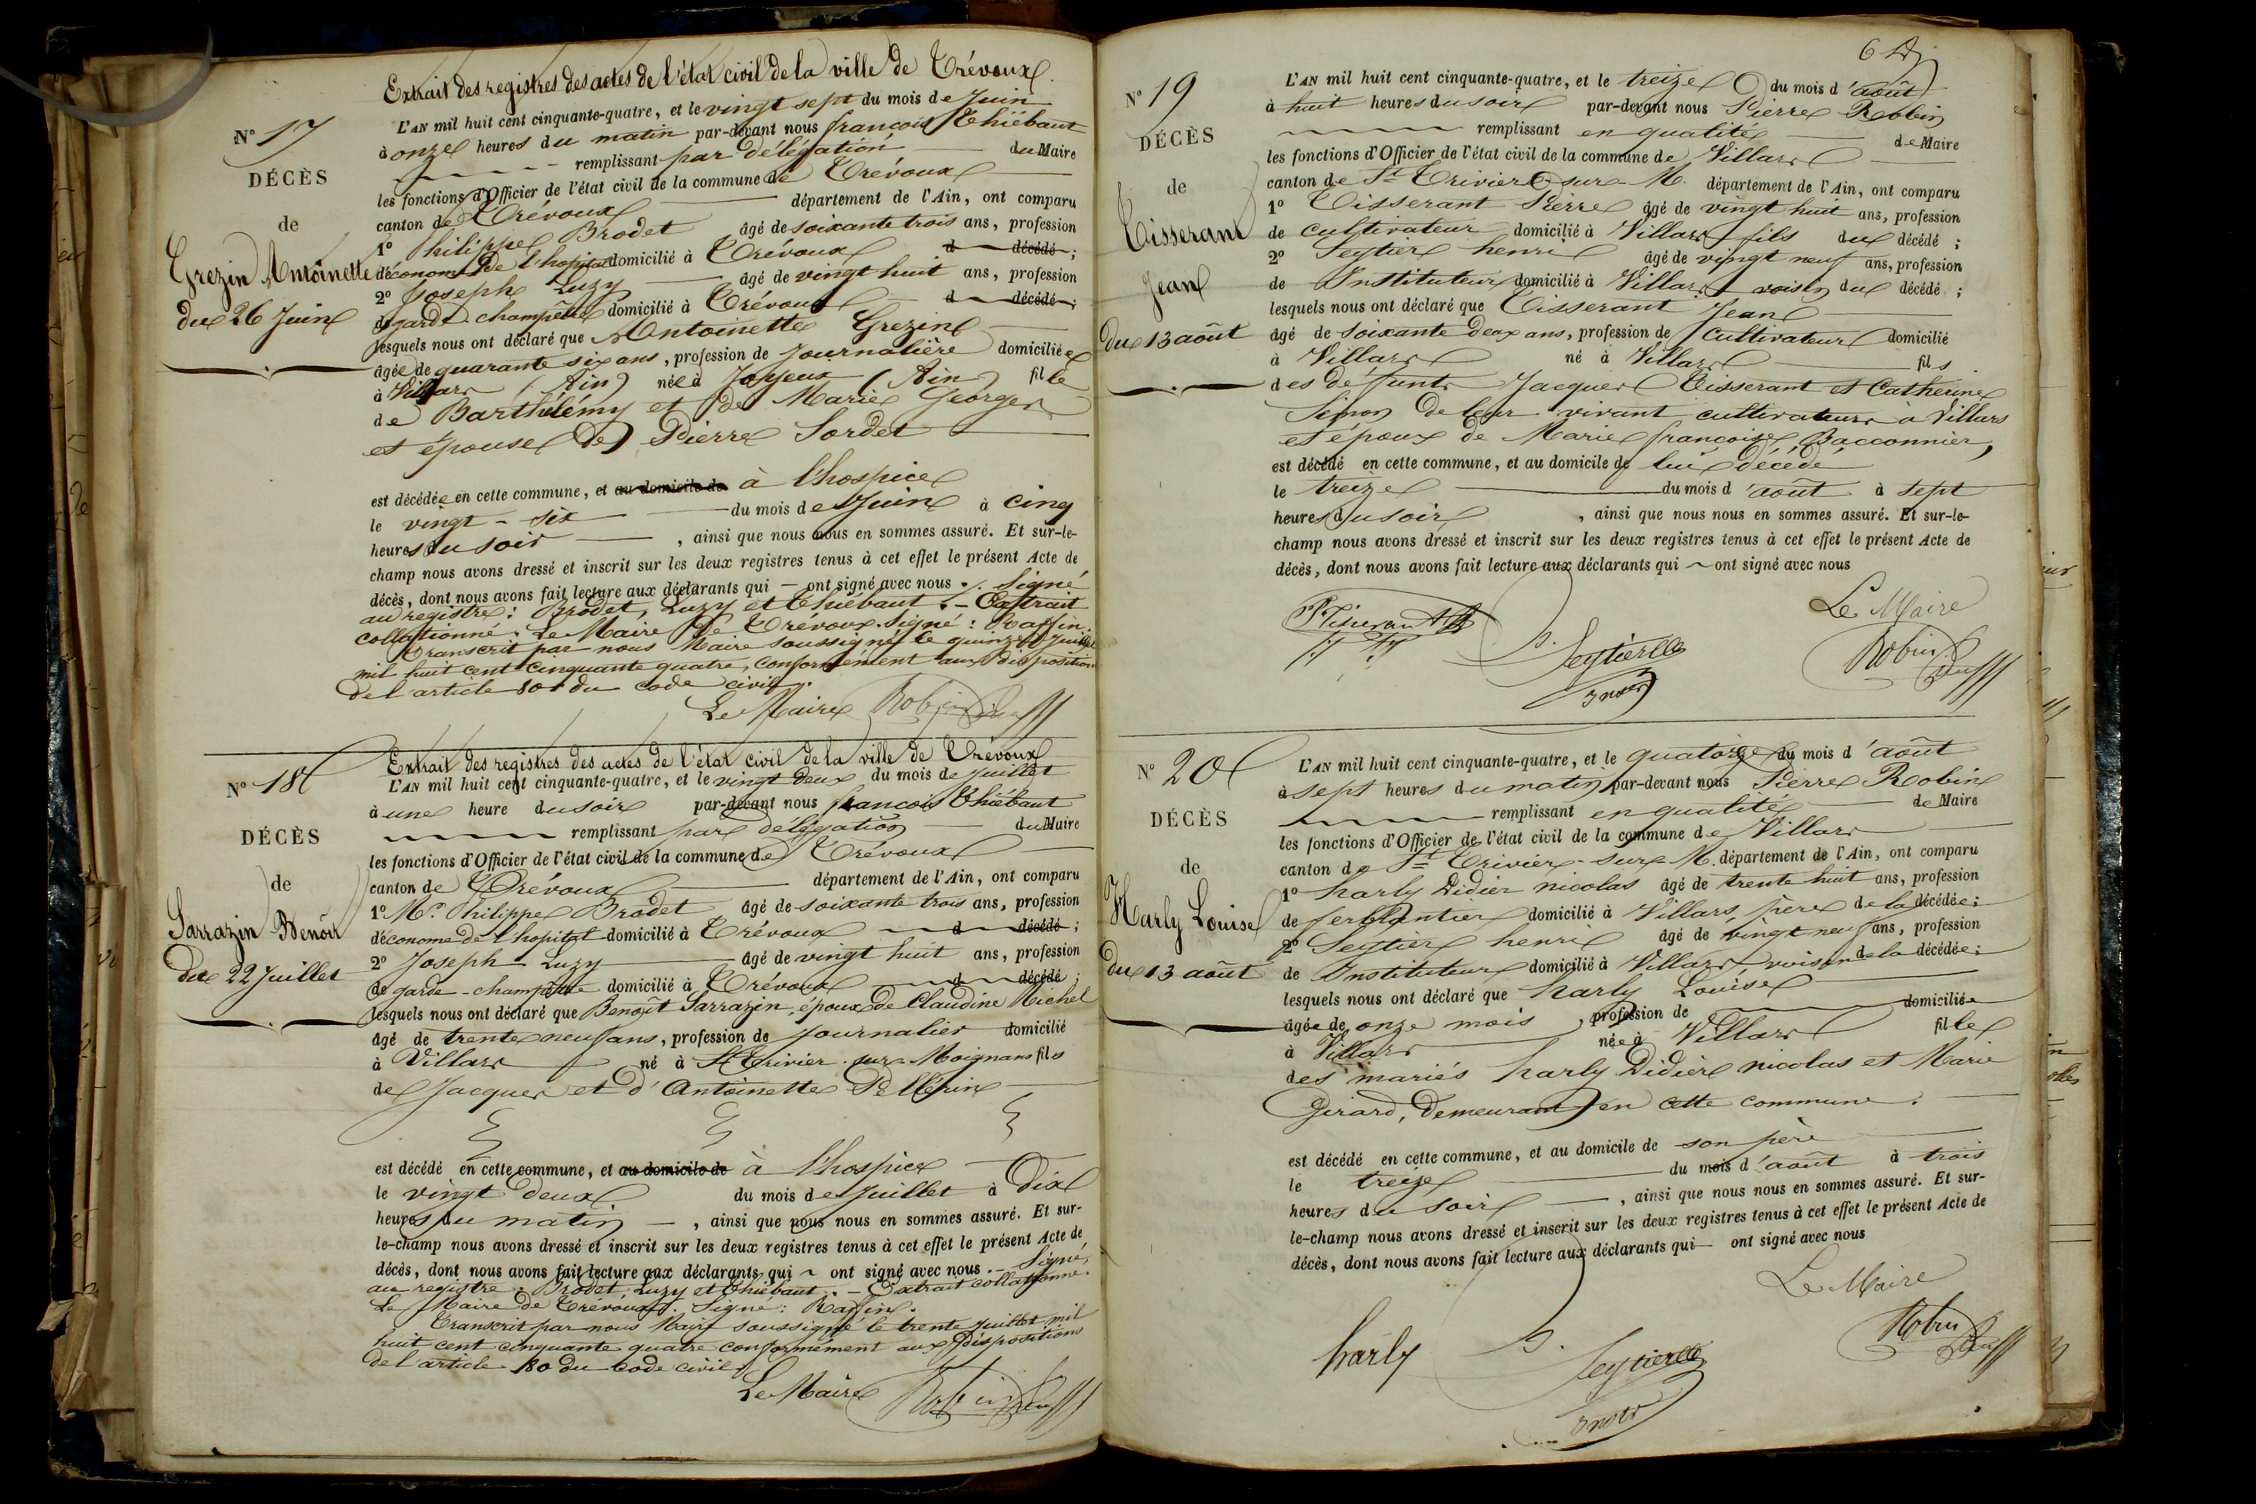 Extrait des registres des actes de l'état civil de la ville de Trévoux.
N° 17
DÉCÈS
de
Grezin Antoinette
du 26 Juin
L'AN mil huit cent cinquante-quatre, et le vingt sept du mois de Juin
à onze heures du matin par-devant nous françois Thiébaut
remplissant par délégation du Maire
les fonctions d'Officier de l'état civil de la commune de Trévoux
canton de Trévoux département de l'Ain, ont comparu
1° Philippe Brodet âgé de soixante trois ans, profession
d'économe de l'hopital domicilié à Trévoux d décédé ;
2° Joseph Luzy âgé de vingt huit ans, profession
de garde-champêtre domicilié à Trévoux d décédé ;
lesquels nous ont déclaré que Antoinette Grezin
âgée de quarante six ans, profession de Journalière domiciliée
à Villars (Ain) née à Joyeux (Ain) fille
de Barthélémy et de Marie Georges
et épouse de Pierre Sordet
est décédée en cette commune, et au domicile de à l'hospice
le vingt-six du mois de Juin à cinq
heures du soir , ainsi que nous nous en sommes assuré. Et sur-le-
champ nous avons dressé et inscrit sur les deux registres tenus à cet effet le présent Acte de
décès, dont nous avons fait lecture aux déclarants qui ont signé avec nous ./. Signé
au registre: Brodet, Luzy et Thiébaut. - Extrait
collationné. Le Maire de Trévoux. Signé: Raffin.
Transcrit par nous Maire soussigné le quinze Juillet
mil huit cent cinquante quatre, conformément aux dispositions
de l'article 80 du code civil.
Le Maire Robin
Extrait des registres des actes de l'état civil de la ville de Trévoux
N° 18
DÉCÈS
de
Sarrazin Benoît
du 22 Juillet
L'AN mil huit cent cinquante-quatre, et le vingt deux du mois de Juillet
à une heure du soir par-devant nous françois Thiébaut
remplissant par délégation du Maire
les fonctions d'Officier de l'état civil de la commune de Trévoux
canton de Trévoux département de l'Ain, ont comparu
1° Mr. Philippe Brodet âgé de soixante trois ans, profession
d'économe de l'hopital domicilié à Trévoux d décédé ;
2° Joseph Luzy âgé de vingt huit ans, profession
de garde-champêtre domicilié à Trévoux d décédé ;
lesquels nous ont déclaré que Benoît Sarrazin, époux de Claudine Michel
âgé de trente neuf ans, profession de Journalier domicilié
à Villars né à St Trivier sur Moignans fils
de Jacques et d'Antoinette Pellerin
est décédé en cette commune, et au domicile de à l'hospice
le vingt deux du mois de Juillet à Dix
heures du matin , ainsi que nous nous en sommes assuré. Et sur-
le-champ nous avons dressé et inscrit sur les deux registres tenus à cet effet le présent Acte de
décès, dont nous avons fait lecture aux déclarants qui ont signé avec nous. - Signé
au registre: Brodet, Luzy et Thiébaut. - Extrait collationné.
Le Maire de Trévoux. Signé: Raffin.
Transcrit par nous Maire soussigné le trente Juillet mil
huit cent cinquante quatre conformément aux dispositions
de l'article 80 du Code civil.
Le Maire Robin
6
N° 19
DÉCÈS
de
Tisserant
Jean
du 13 août
L'AN mil huit cent cinquante-quatre, et le treize du mois d'août
à huit heures du soir par-devant nous Pierre Robin
remplissant en qualité de Maire
les fonctions d'Officier de l'état civil de la commune de Villars
canton de St Trivier-sur-M. département de l'Ain, ont comparu
1° Tisserant Pierre âgé de vingt huit ans, profession
de cultivateur domicilié à Villars fils du décédé ;
2° Seytier henri âgé de vingt neuf ans, profession
de Instituteur domicilié à Villars voisin du décédé ;
lesquels nous ont déclaré que Tisserant Jean
âgé de soixante deux ans, profession de Cultivateur domicilié
à Villars né à Villars fils
des défunts Jacques Tisserant et Catherine
Simon de leur vivant cultivateurs à Villars
et époux de Marie françoise Bacconnier,
est décédé en cette commune, et au domicile de lui décédé
le treize du mois d'août à sept
heures du soir , ainsi que nous nous en sommes assuré. Et sur-le-
champ nous avons dressé et inscrit sur les deux registres tenus à cet effet le présent Acte de
décès, dont nous avons fait lecture aux déclarants qui ont signé avec nous
Le Maire
P Tisserant
Seytier
Robin
N° 20
DÉCÈS
de
Harly Louise
du 13 août
L'AN mil huit cent cinquante-quatre, et le quatorze du mois d'août
à sept heures du matin par-devant nous Pierre Robin
remplissant en qualité de Maire
les fonctions d'Officier de l'état civil de la commune de Villars
canton de St Trivier-sur-M. département de l'Ain, ont comparu
1° harly Didier nicolas âgé de trente huit ans, profession
de ferblantier domicilié à Villars père de la décédée ;
2° Seytier henri âgé de vingt neuf ans, profession
de Instituteur domicilié à Villars voisin de la décédée ;
lesquels nous ont déclaré que harly Louise
âgée de onze mois , profession de domiciliée
à Villars née à Villars fille
des mariés harly Didier nicolas et Marie
Girard, demeurant en cette commune.
est décédé en cette commune, et au domicile de son père
le treize du mois d'août à trois
heures du soir , ainsi que nous nous en sommes assuré. Et sur-
le-champ nous avons dressé et inscrit sur les deux registres tenus à cet effet le présent Acte de
décès, dont nous avons fait lecture aux déclarants qui ont signé avec nous
Le Maire
harly
Seytier
Robin